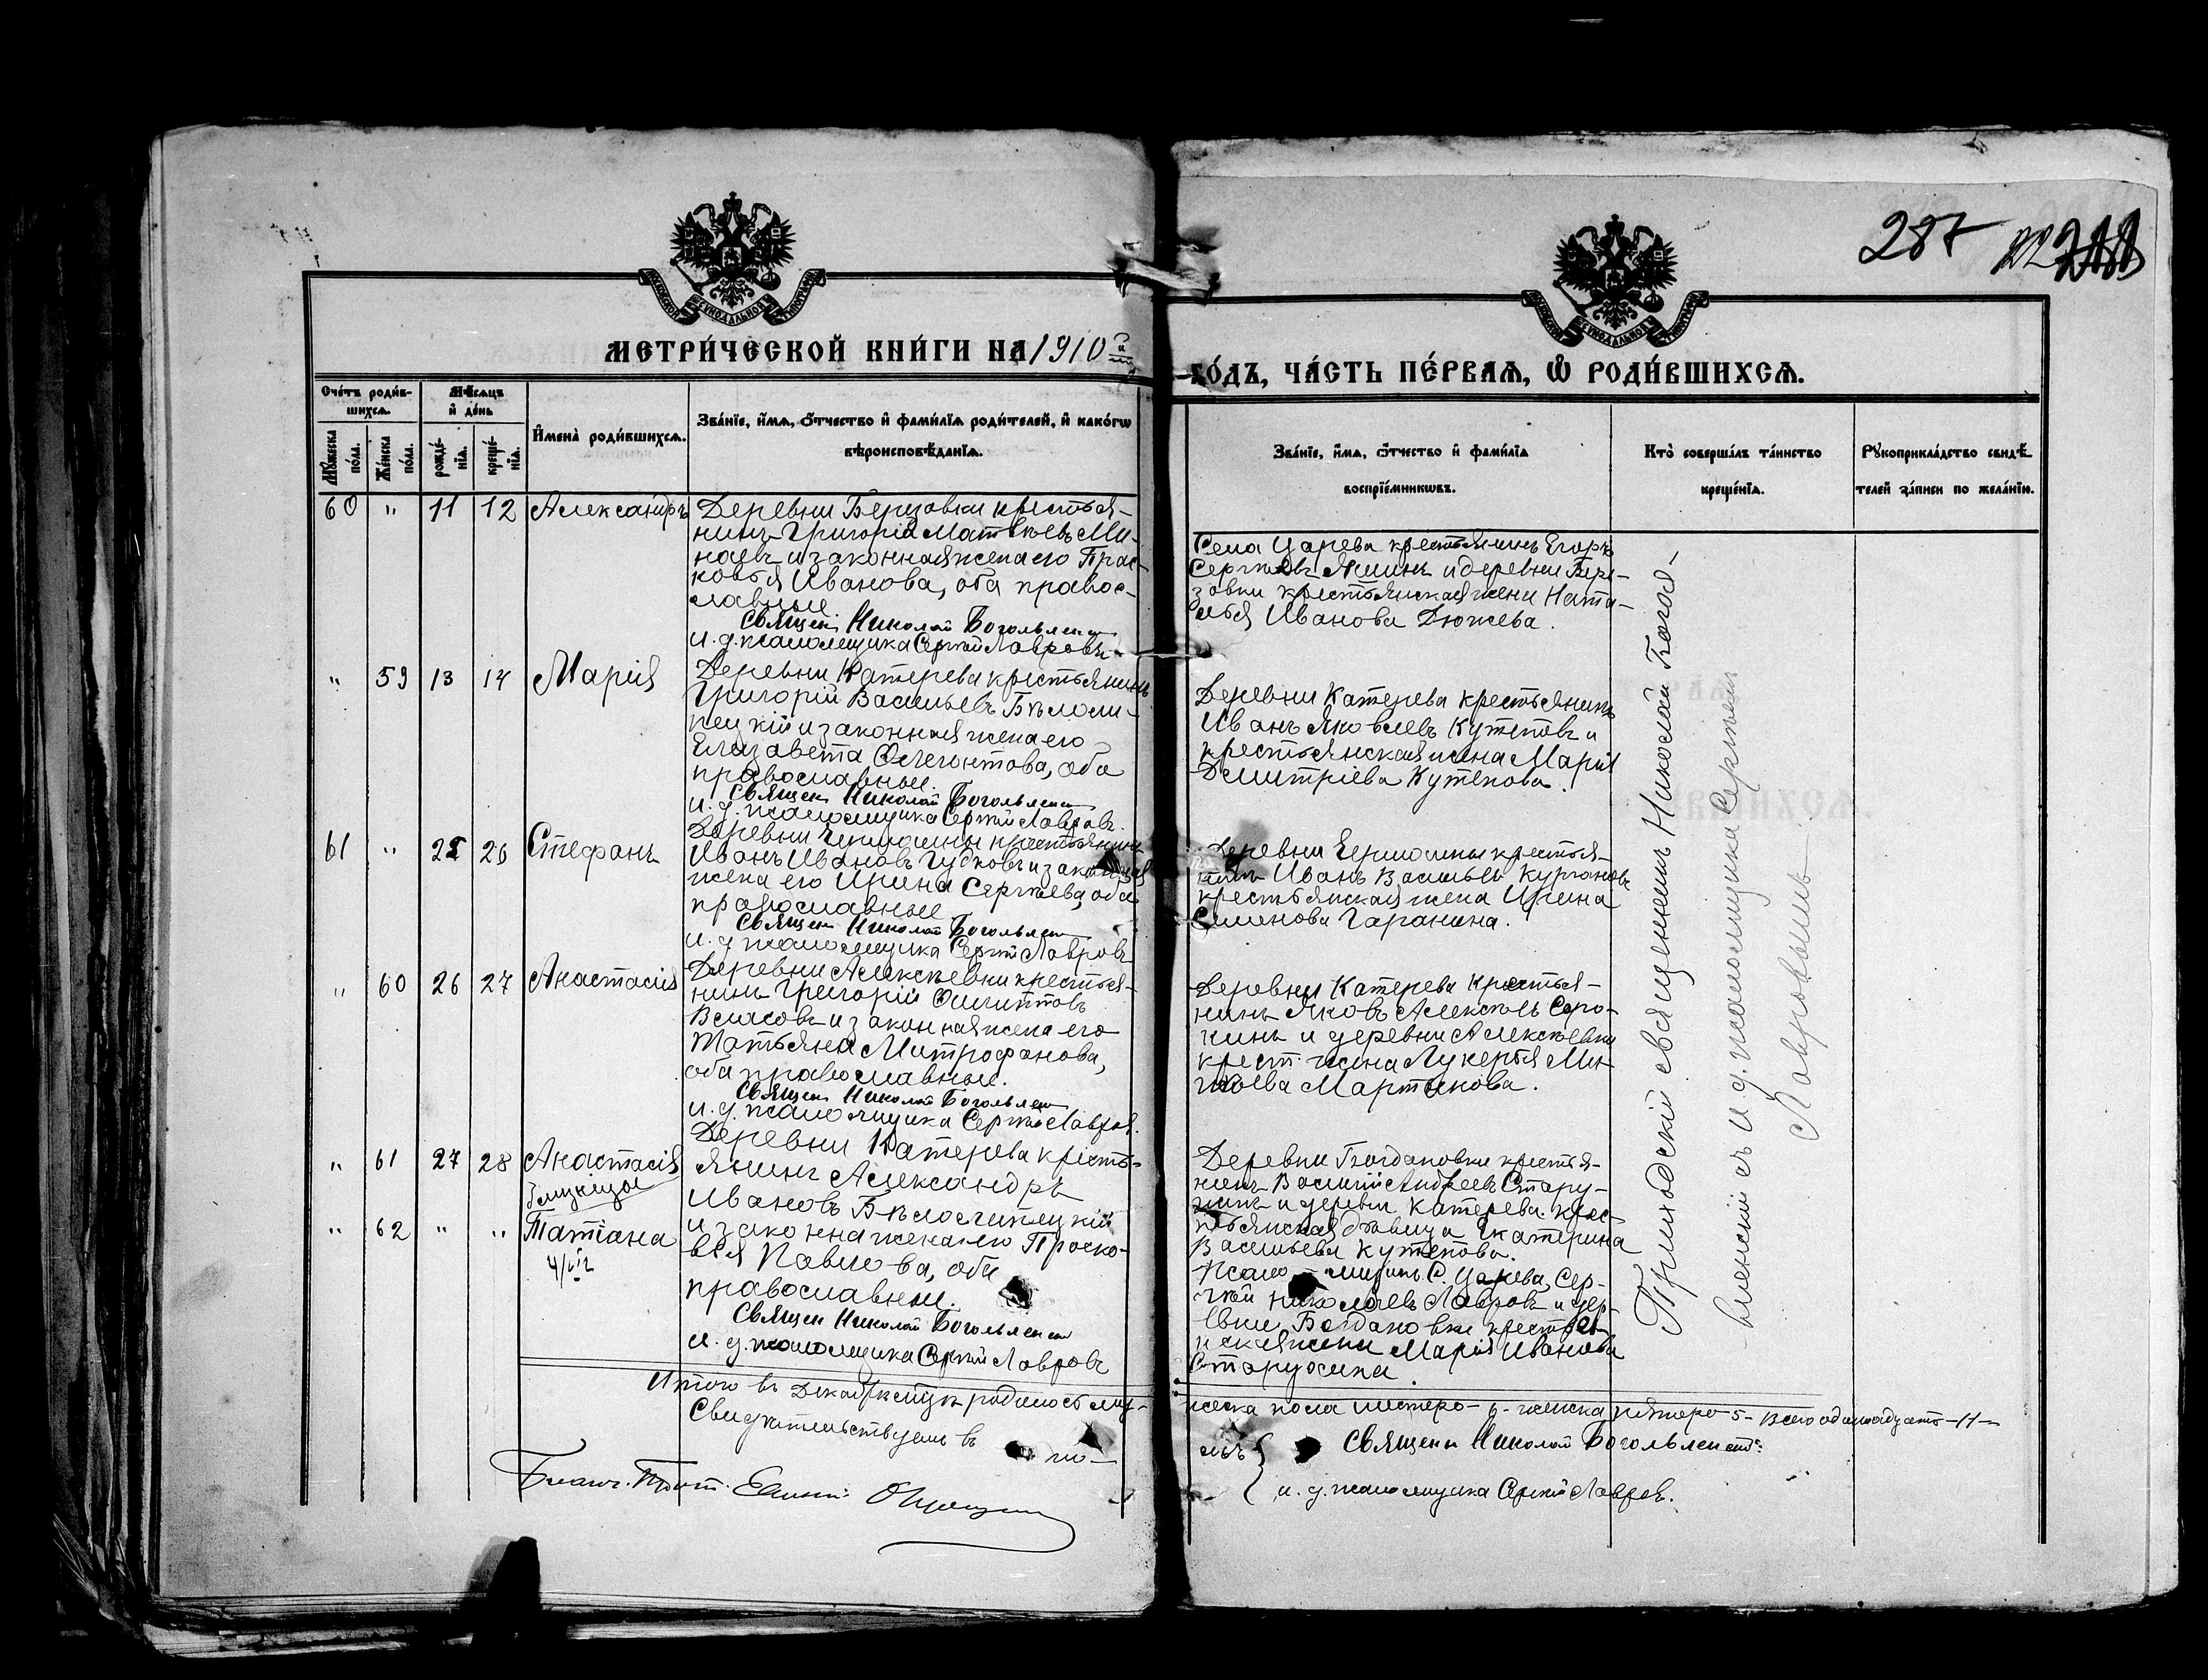 287
МОСКОВСКОЙ СѴНОДАЛЬНОЙ ТИПОГРАФІИ
МОСКОВСКОЙ СѴНОДАЛЬНОЙ ТИПОГРАФІИ
МЕТРИ́ЧЕСКОЙ КНИ́ГИ НА 1910 й
ГО́ДЪ, ЧА́СТЬ ПЕ́РВАѦ, Ѡ РОДИ́ВШИХСѦ.
Сче́тъ роди́в-
шихсѧ.
Мꙋ́жеска по́ла.
Же́нска по́ла.
Мѣ́сѧцъ
и҆ де́нь
рожде́-
нїѧ.
креще́-
нїѧ.
И҆мена̀ роди́вшихсѧ.
Зва́нїе, и҆́мѧ, ѻ҆́тчество и҆ фами́лїѧ роди́телей, и҆ како́гѡ
вѣроисповѣ́данїѧ.
Зва́нїе, и҆́мѧ, ѻ҆́тчество и҆ фами́лїѧ
воспрїе́мникѡвъ.
Кто̀ соверша́лъ та́инство
креще́нїѧ.
Рꙋкоприкла́дство свидѣ́-
телей за́писи по жела́нїю.
60 " 11 12 Александръ
Деревни Березовки крестья-
нинъ Григорій Матвѣевъ Ми-
наевъ и законная жена его Прас-
ковья Иванова, оба правос-
лавные.
Священ. Николай Богоявленскій
и. д. псаломщика Сергѣй Лавровъ
Села Царева крестьянинъ Егоръ
Сергѣевъ Яшинъ и деревни Бере-
зовки крестьянская жена Ната-
лья Иванова Дюжева.
" 59 13 14 Марія
Деревни Катерева крестьянинъ
Григорій Васильевъ Бѣлоли-
пецкій и законная жена его
Елизавета Олегонтова, оба
православные.
Священ. Николай Богоявленскій
и. д. псаломщика Сергѣй Лавровъ.
Деревни Катерева крестьянинъ
Иванъ Яковлевъ Кутеповъ и
крестьянская жена Марія
Димитріева Кутепова.
61 " 25 26 Стефанъ
Деревни Ермошины крестьянинъ
Иванъ Ивановъ Губковъ и законная
жена его Ирина Сергѣева, оба
православные
Священ. Николай Богоявлен
и. д. псаломщика Сергѣй Лавровъ
Деревни Ермошины крестья-
нинъ Иванъ Васильевъ Кургановъ
крестьянская жена Ирина
Семенова Гаранина.
" 60 26 27 Анастасія
Деревни Алексѣевки крестья-
нинъ Григорій
Власовъ и законная жена его
Татьяна Митрофанова,
оба православные.
Священ. Николай Богоявлен
и. д. псаломщика Сергѣй Лавров.
Деревни Катерева крестья-
нинъ Яковъ Алексѣевъ Соро-
кинъ и деревни Алексѣевки
крест. жена Лукерья Ми-
Мартынова.
" 61 27 28 Анастасія
близнецы
" 62 " " Татіана
Деревни Катерева кресть-
янинъ Александръ
Ивановъ Бѣлолипецкій
и законная жена его Праско-
вья Павлова, оба
православные.
Священ. Николай Богоявленскій
и. д. псаломщика Сергѣй Лавровъ
Деревни Богдановки крестья-
нинъ Василій Андреевъ Стару-
хинъ и деревни Катерева крес-
тьянская дѣвица Екатерина
Васильева Кутепова.
Псаломщикъ С. Царева, Сер-
гѣй Николаевъ Лавровъ и дер-
евни Богдановки крестьян-
ская жена Марія Иванова
Старухина.
Приходскій священникъ Николай Богоя-
вленскій съ и. д. псаломщика Сергѣемъ
Лавровымъ
Итого въ Декабрѣ мѣсяцѣ родилось му-
жеска пола шестеро - 6 - женска пятеро - 5 - всего одиннадцать - 11 -
Свидѣтельствуемъ въ томъ
Священ. Николай Богоявленскій
и. д. псаломщика Сергѣй Лавровъ.
Благоч. Прот.